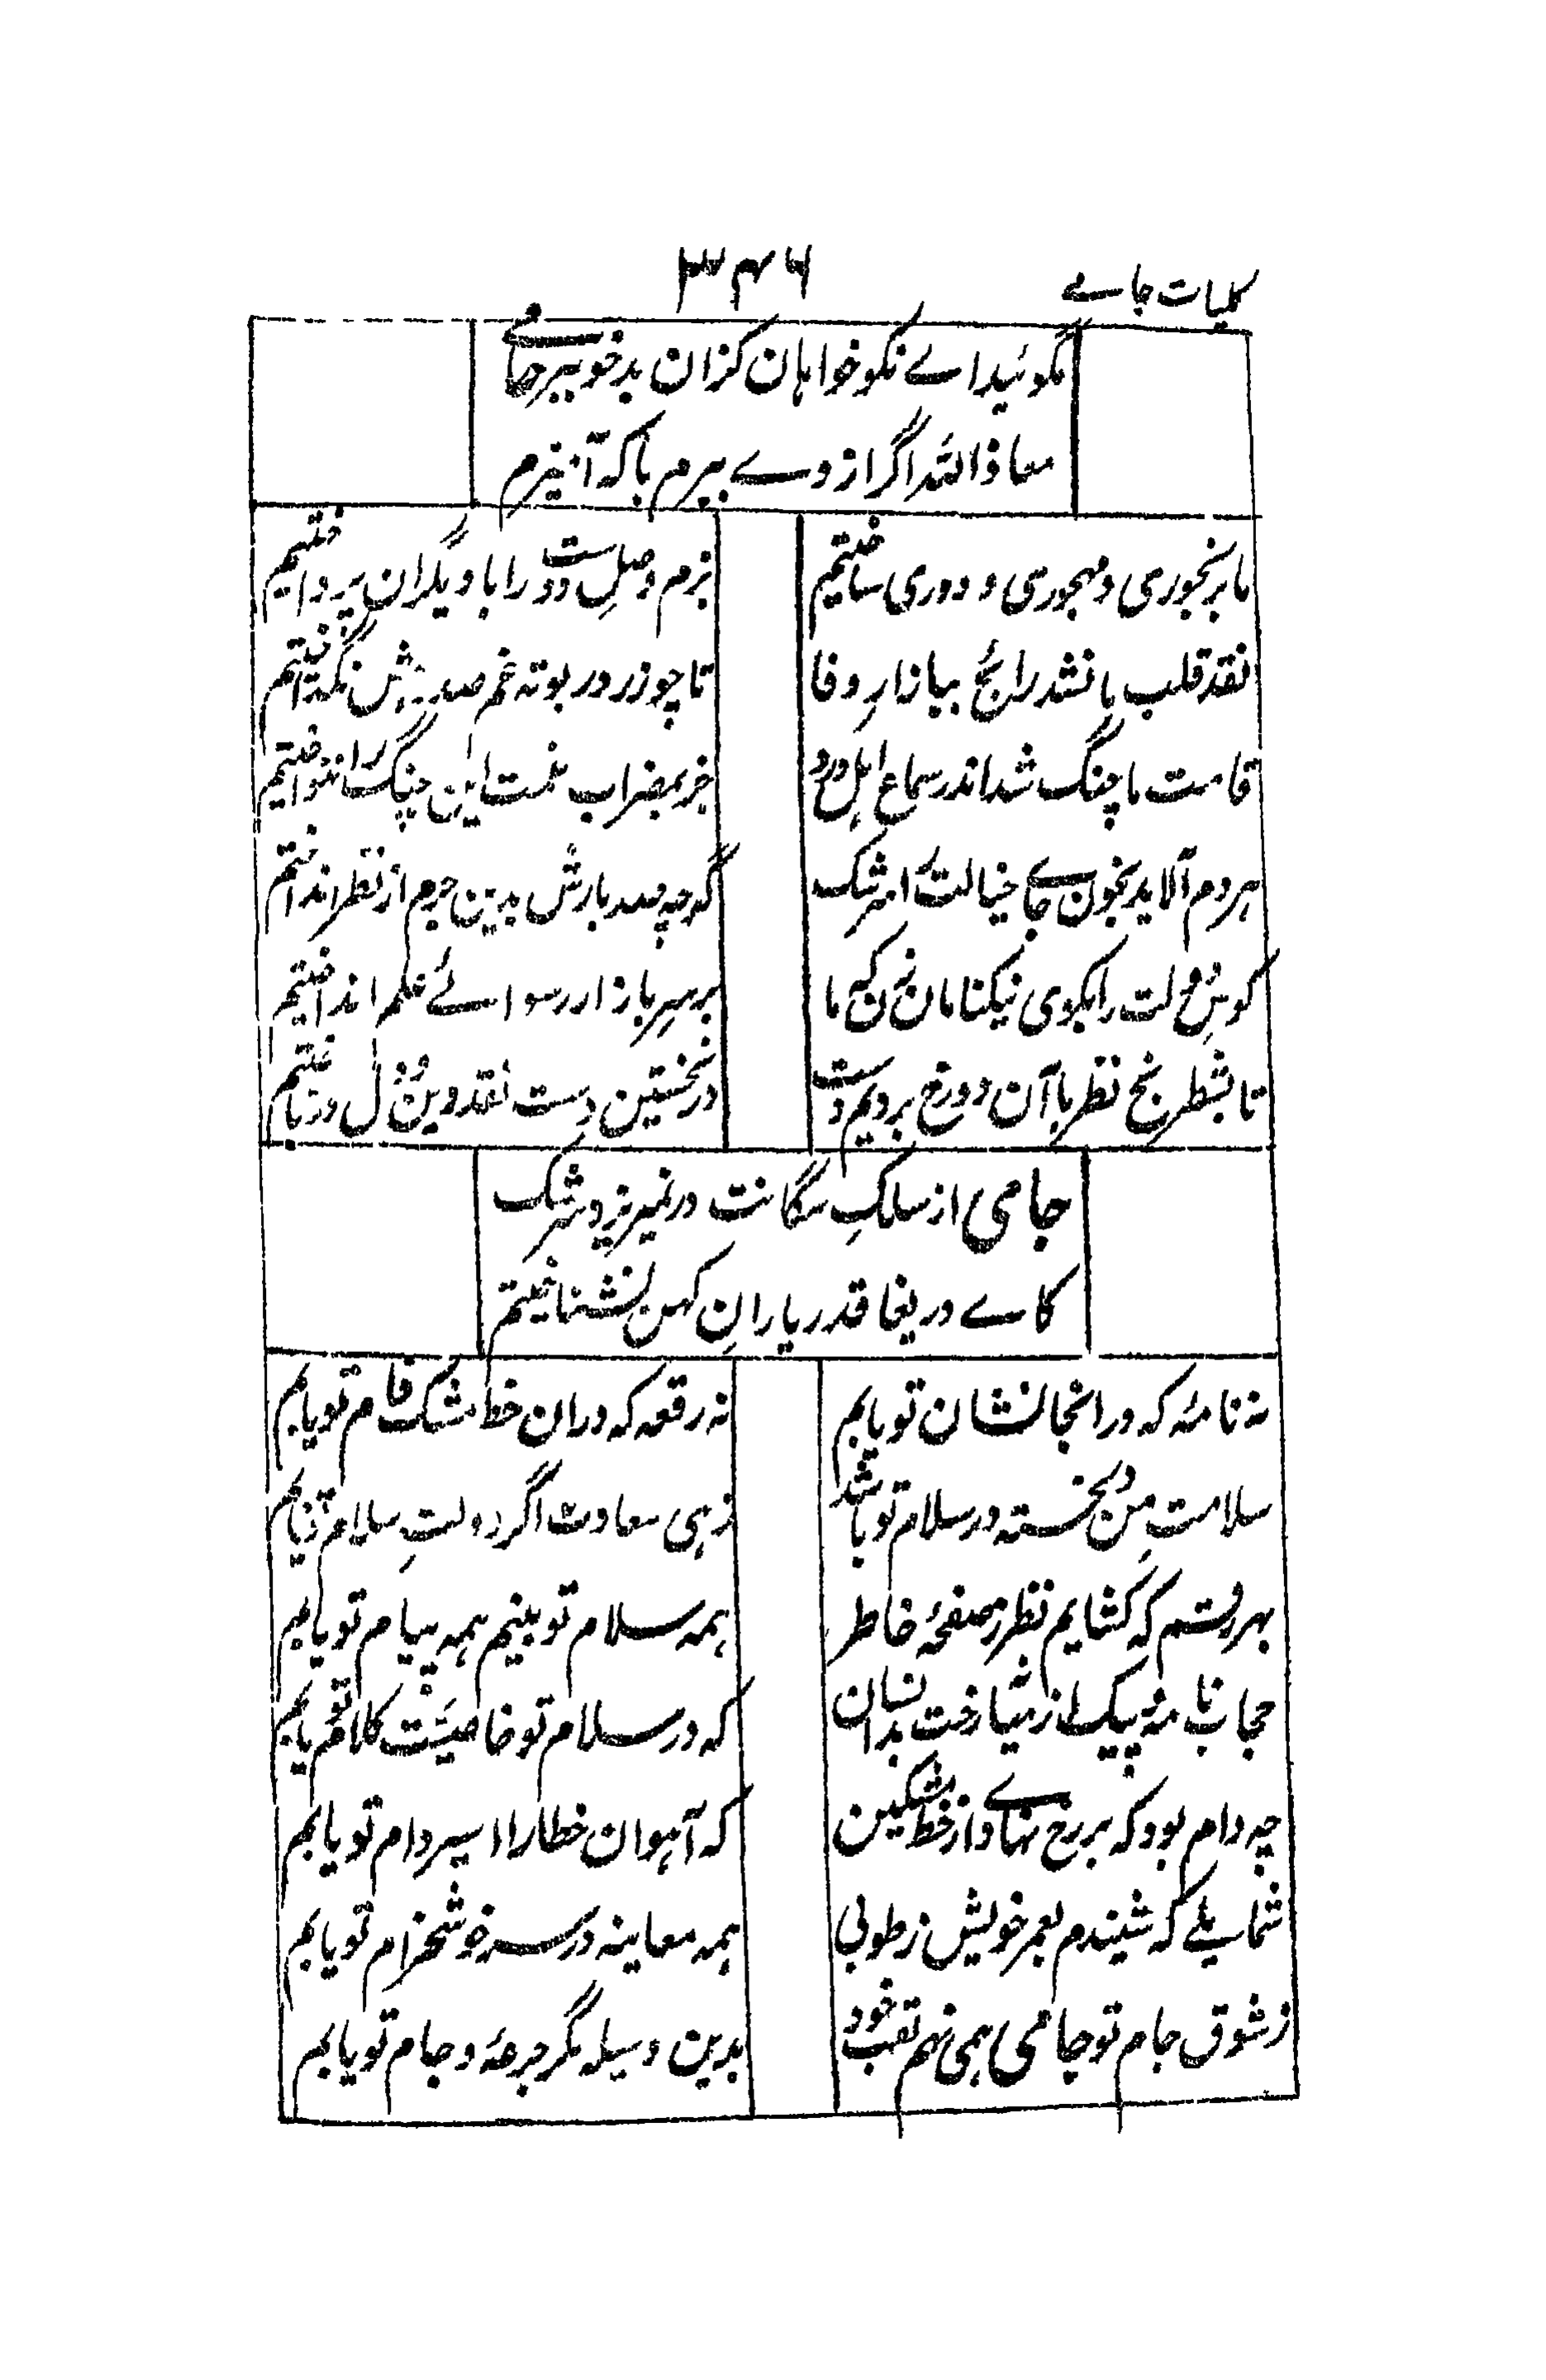 کلیات جامے
۳۴۶
مگوئیداے نکوخواہان کزان بدخوببرجامے
معاذاللہ اگر ازوے ببرم باکہ آمیزم
ما برنجوری و مہجوری و دوری ساختیم
بزم وصلِ دوست را با دیگران پرداختیم
نقد قلب ما نشد رائج ببازارِ وفا
تا چو زر در بوتہ غم صد رہش نگداختیم
قامت ما چنگ شد اندر سماع اہل درد
جز بمضراب غمت این چنگ را ننواختیم
ہردم آلاید بخون جاے خیالت را سرشک
گرچہ صد بارش بدین جرم از نظر انداختیم
کوسِ دولت را بکوی نیکنامان زن کہ ما
برسرِ بازار رسوائے علم انداختیم
تا بشطرنج نظر با آن دو رخ بردیم دست
در نخستین دست نقد دین و دل در باختیم
جامی از سلکِ سگانت در نمیریزد سرشک
کاے دریغا قدر یارانِ کہن نشناختیم
نہ نامۂ کہ درانجا نشان تو یابم
نہ رقعہ کہ دران خط مشک فام تو یابم
سلامتِ من دلخستہ در سلام تو باشد
زہی سعادت اگر دولتِ سلام تو یابم
بہر رقم کہ کشایم نظر ز صفحۂ خاطر
ہمہ سلام تو بینم ہمہ پیام تو یابم
حجاب نامہ و پیک از میانہ رخت بدانسان
کہ در سلام تو خاصیت کلام تو یابم
چہ دام بود کہ بر رخ نہادے از خط مشکین
کہ آہوان خطا را اسیر دام تو یابم
شمایلے کہ شنیدم بعمر خویش ز طوبی
ہمہ معاینہ در سرو خوشخرام تو یابم
ز شوق جام تو جامی ہمی نہم لقب خود
بدین وسیلہ مگر جرعۂ و جام تو یابم